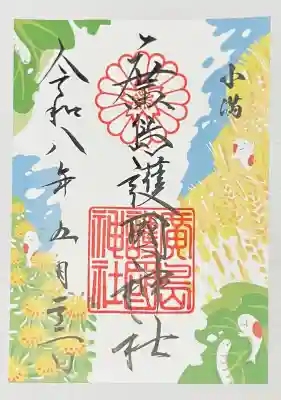 小満
廣島護國神社
廣島
護國
神社
令和八年五月二十一日